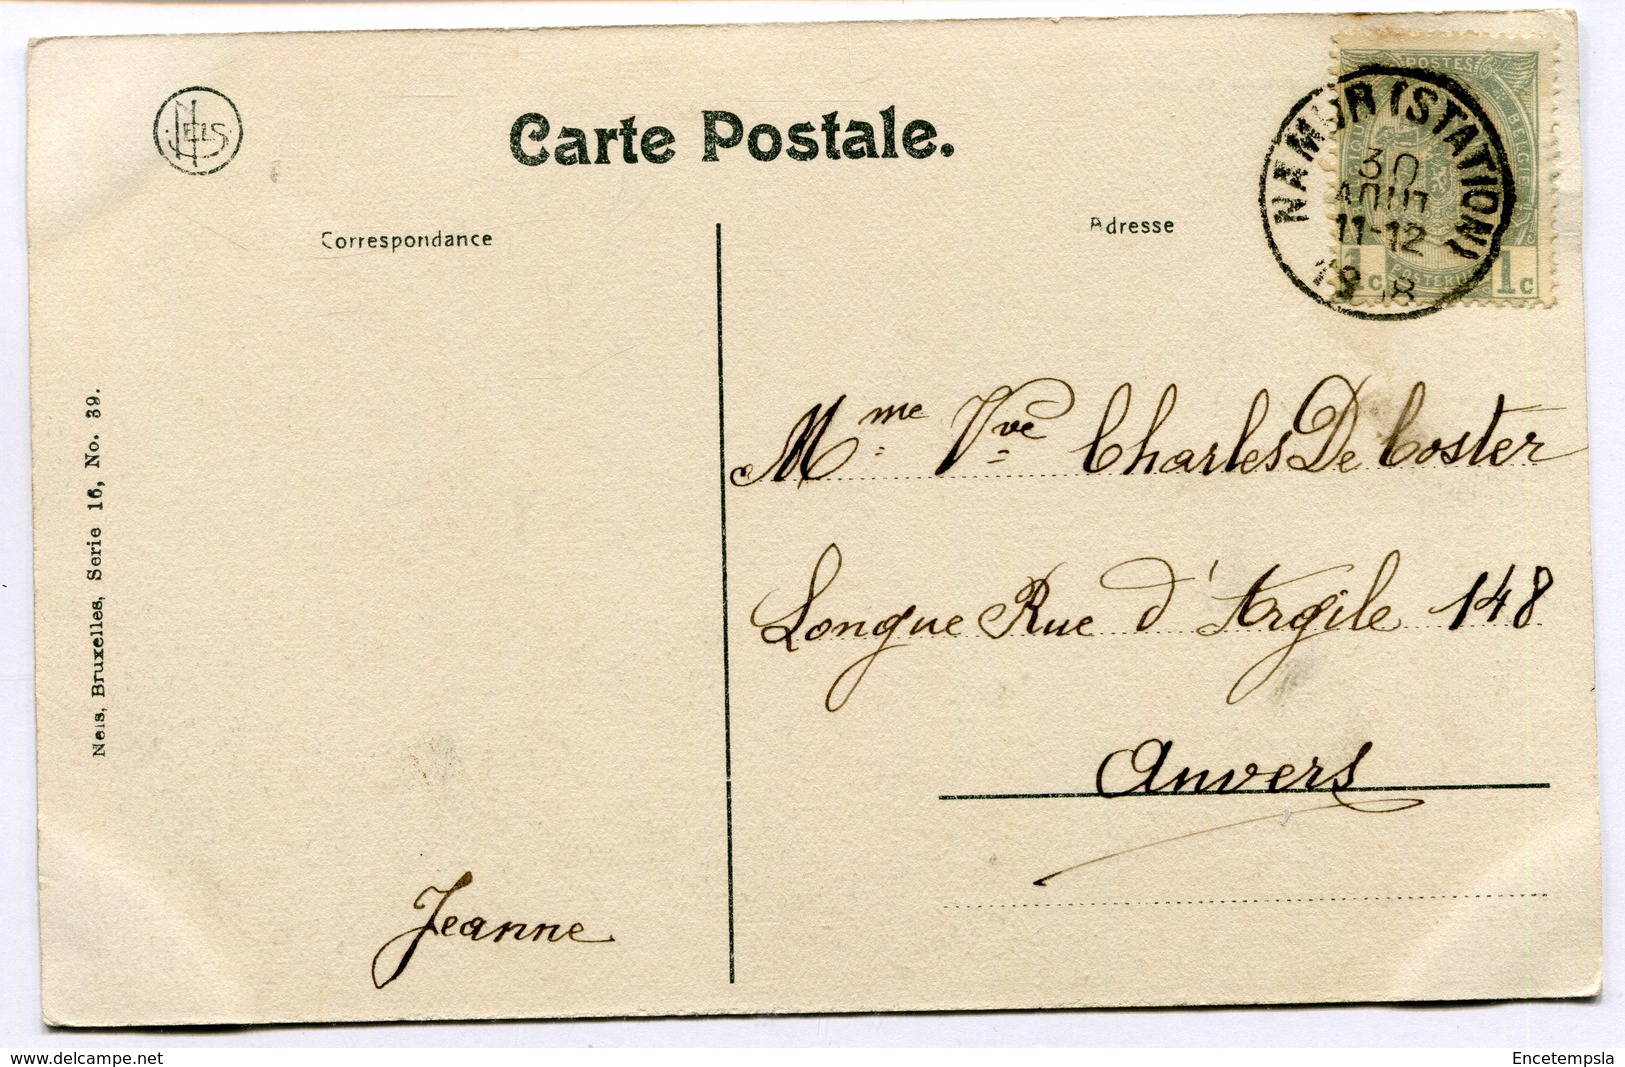 Nels
Carte Postale.
Correspondance
Adresse
NAMUR (STATION)
30
AOUT
11-12
POSTES
BELGIE
1c 1c
Nels, Bruxelles, Serie 16, No. 39.
Mme Vve Charles De Coster
Longue Rue d'Argile 148
Anvers
Jeanne
delcampe.net
Encetempsla